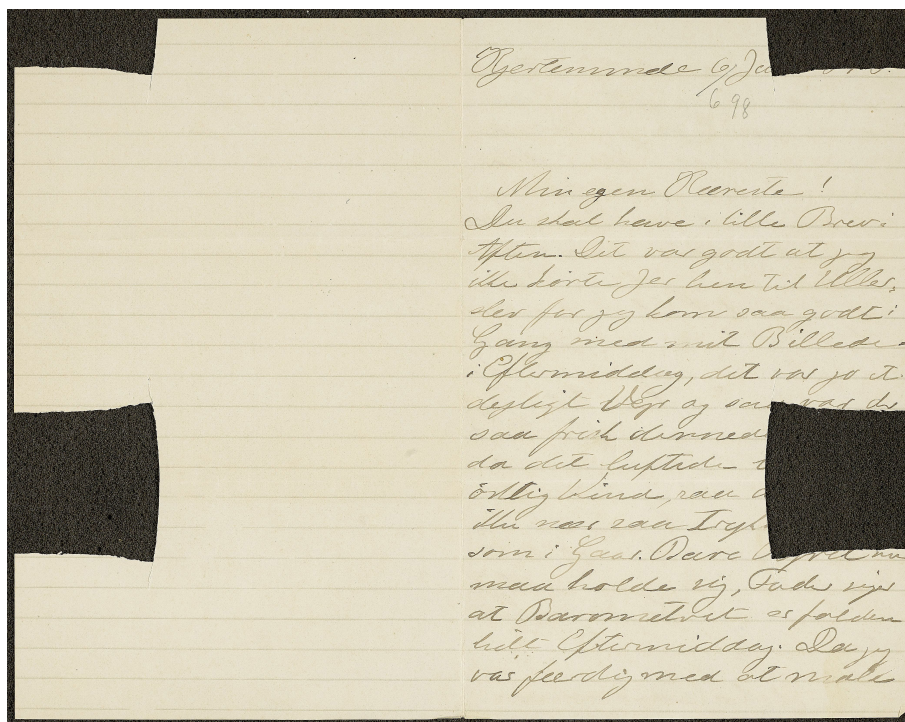 Kjerteminde 6/
6 98
Min egen Kæreste!
Du skal have i lille Brev i
Aften. Det var godt at jeg
ikke kørte Jer hen til Uller-
slev for jeg kom saa godt i
Gang med mit Billede
i Eftermiddag, det var jo et
dejligt Vejr og saa var der
saa frisk dernede
da det luftede
östlig Vind, saa
ikke nær saa
som i Gaar. Bare
maa holde sig, Fader siger
at Barometret er falden
hele Eftermiddag. Da jeg
var færdig med at male